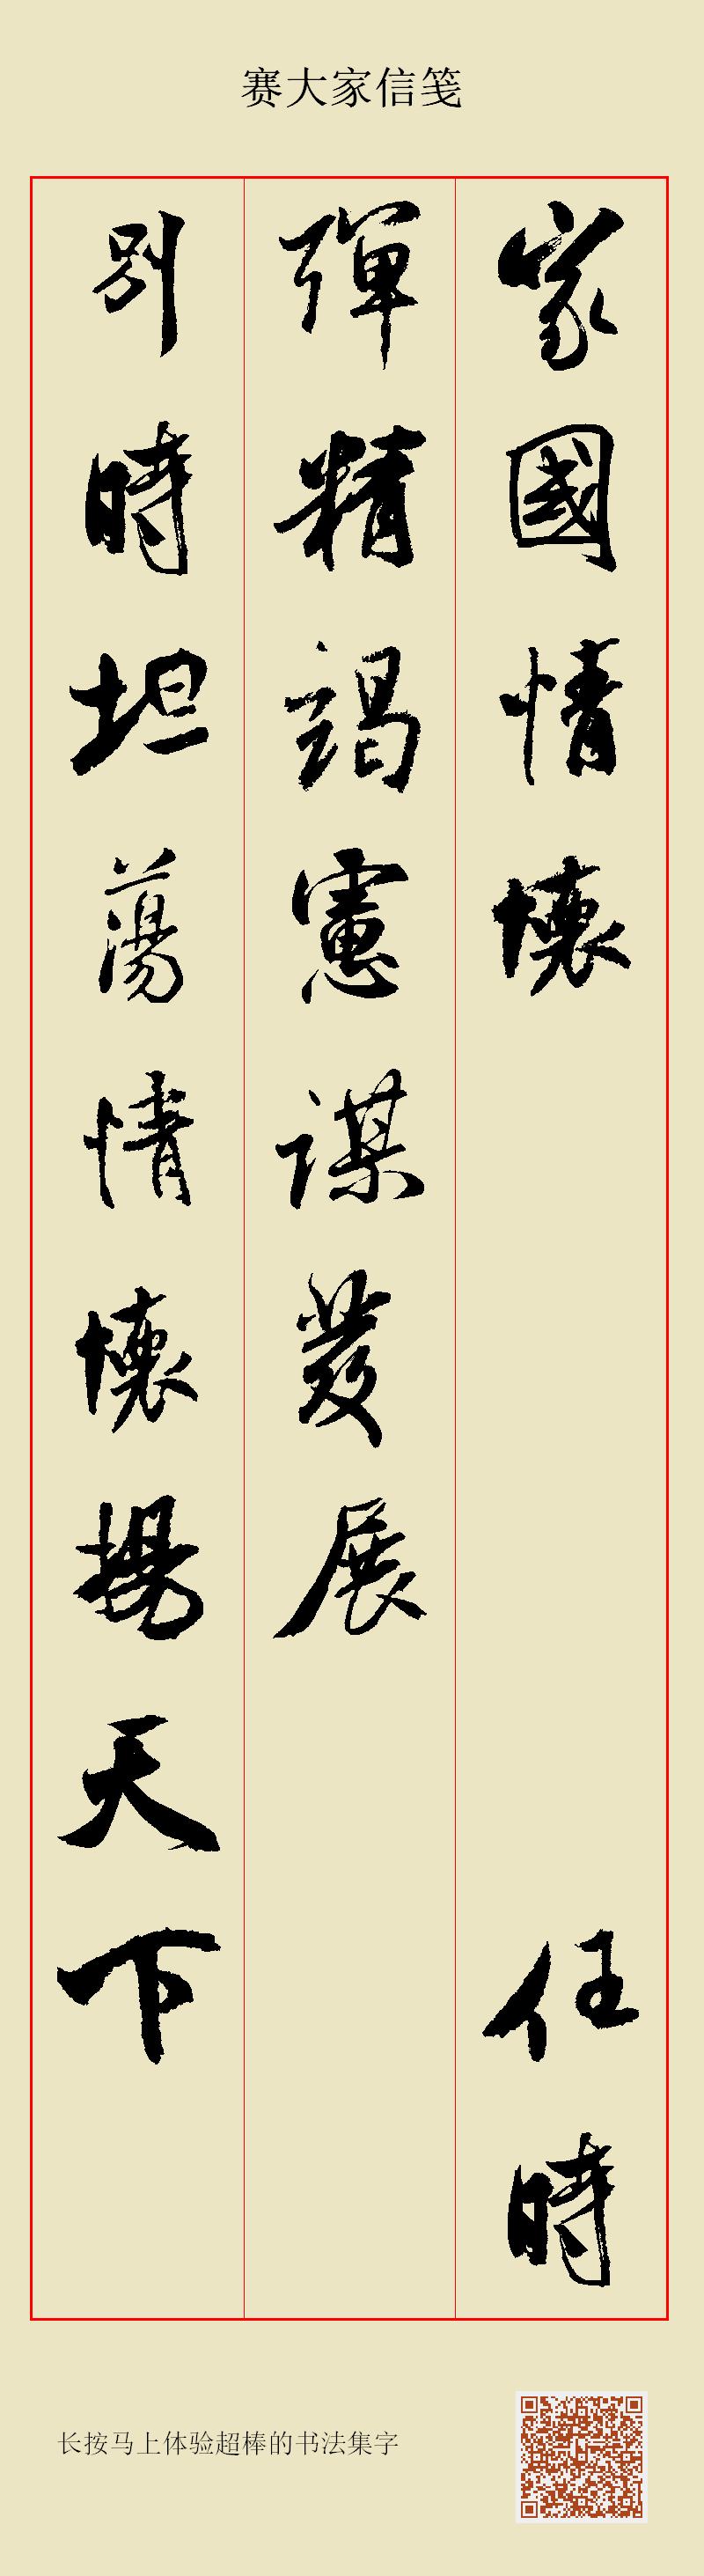 赛大家信笺
家國情懷 任時
彈精竭憲謀發展
別時坦蕩情懷揚天下
长按马上体验超棒的书法集字